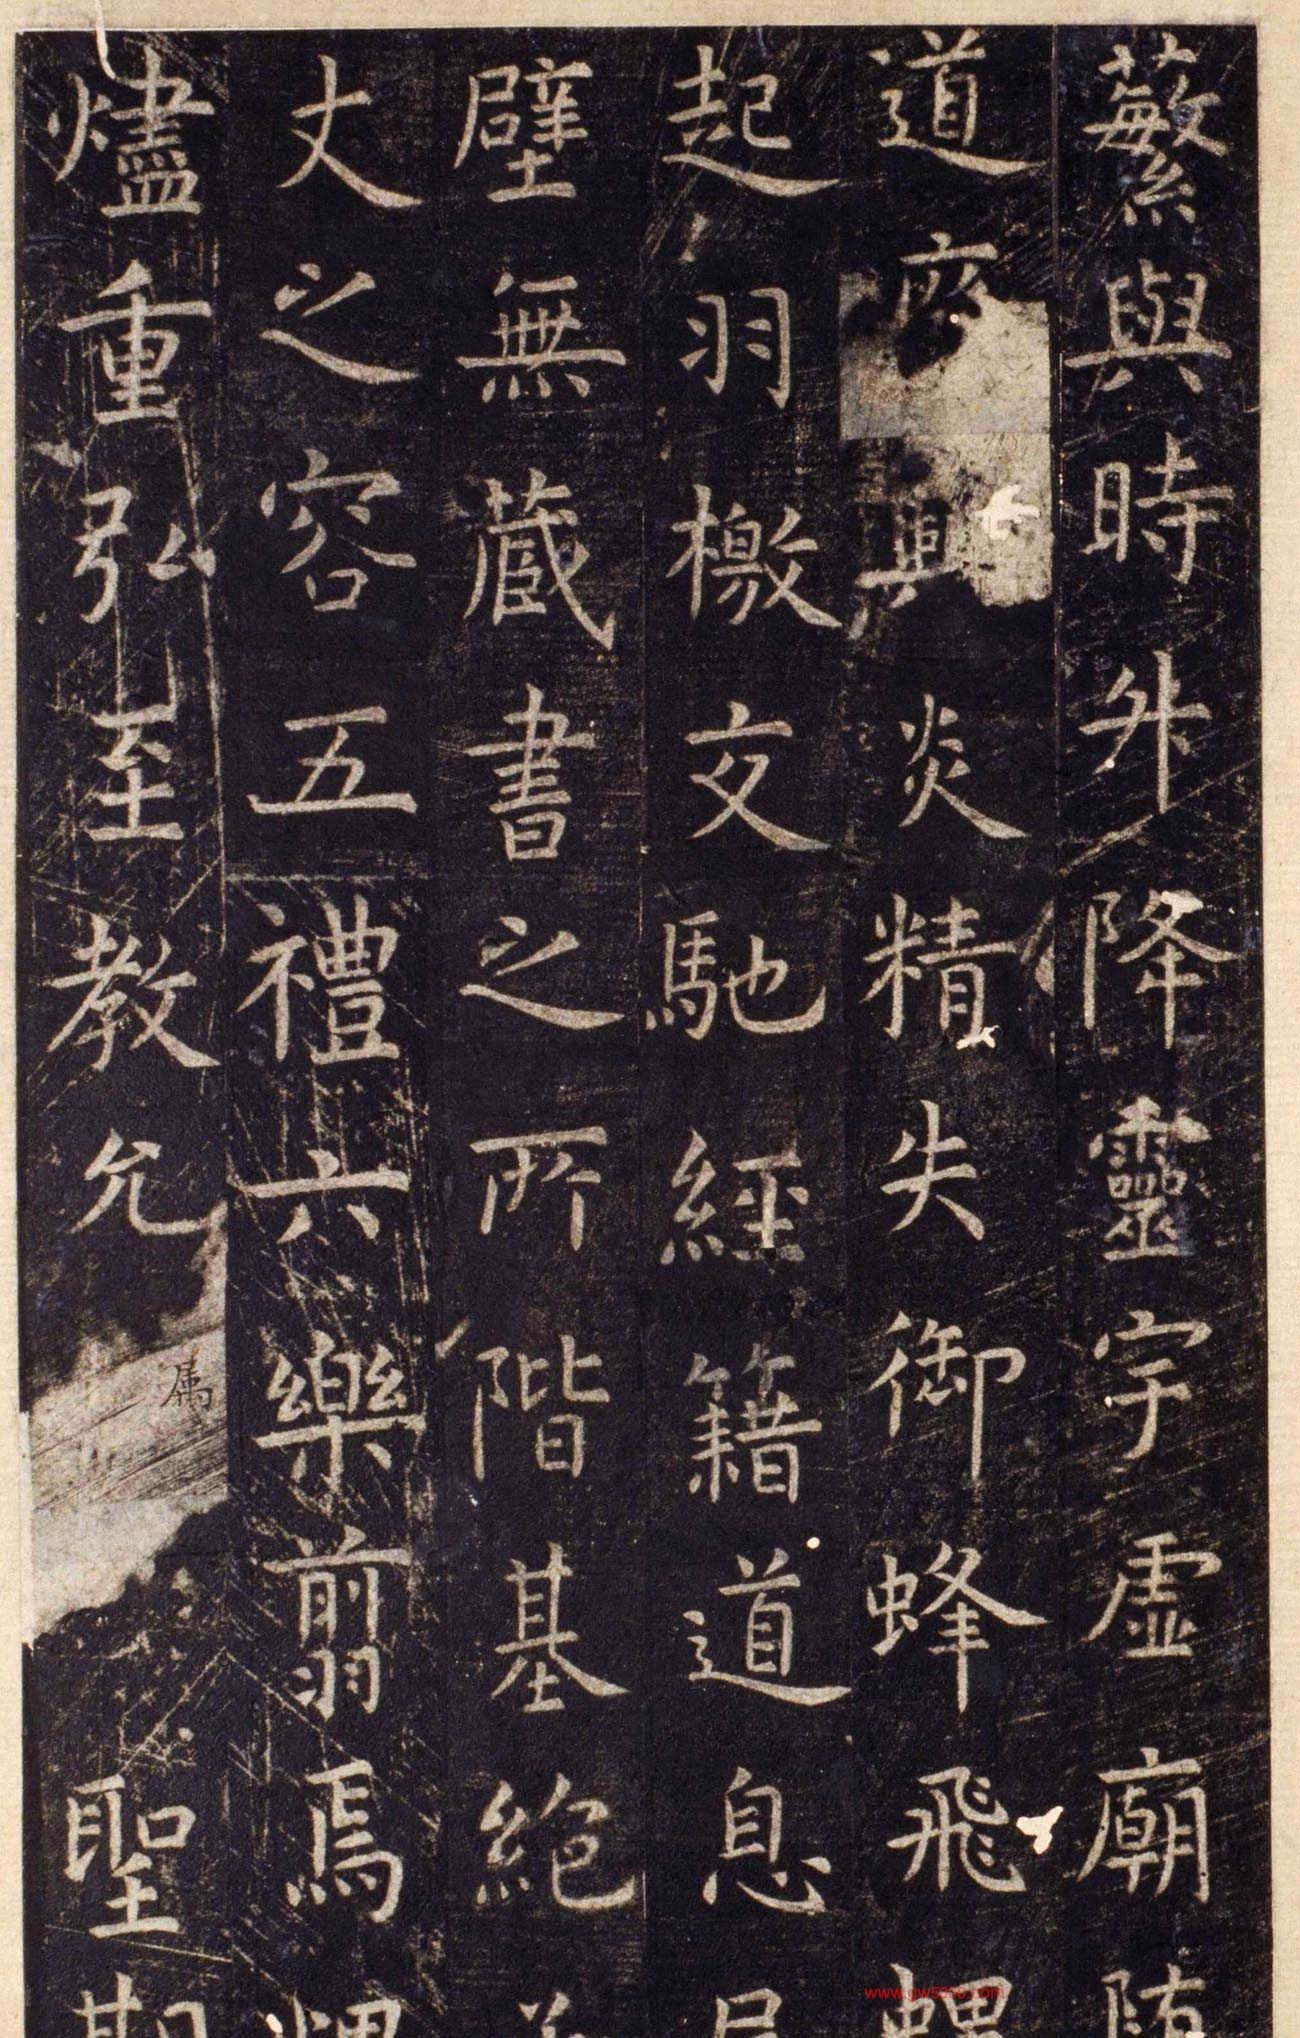 蘩與時升降靈宇虛廟随
道廢興炎精失御蜂飛
起羽檄交馳經籍道息
壁無藏書之所階基絕
丈之容五禮六樂翦焉煨
燼重弘至教允属聖期